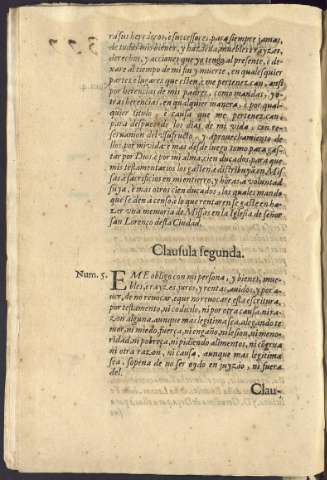 ra sus herederos, e successores, para siempre jamas,
de todos mis bienes, y hazienda, muebles, rayzes,
derechos, y acciones que yo tenga al presente, è de-
xare al tiempo de mi fin y muerte, en qualesquier
partes, e lugares que esten, è me pertenezcan, assi
por herencias de mis padres, como mandas, y o-
tras herencias, en qualquier manera, è por qual-
quier titulo, è causa que me pertenezcan:
para despues de los dias de mi vida, con re-
seruacion del vsufructo, y aprouechamiento de-
llos por mi vida: e mas desde luego tomo para gas-
tar por Dios, è por mi alma, cien ducados, para que
mis testamentarios los gasten, è distribuyan en Mis-
sas, è sacrificios en mi entierro, y horas a voluntad
suya, è mas otros cien ducados, los quales mando
que se den à censo, lo que rentaren se gaste en ha-
zer vna memoria de Missas en la Iglesia de señor
san Lorenço desta Ciudad.
Clausula segunda.
Num. 5. E ME obligo con mi persona, y bienes, mue-
bles, e rayzes, juros, y rentas, auidos, y por a-
uer, de no reuocar, e que no reuocare esta escritura,
por testamento, ni codicilo, ni por otra causa, ni ra-
zon alguna, aunque mas legitima sea, alegando te-
mor, ni miedo, fuerça, ni engaño, ni lesion, ni meno-
ridad, ni pobreça, ni pidiendo alimentos, ni cõgrua
ni otra razon, ni causa, aunque mas legitima
sea, sopena de no ser oydo en juyzio, ni fuera
del.
Clau-